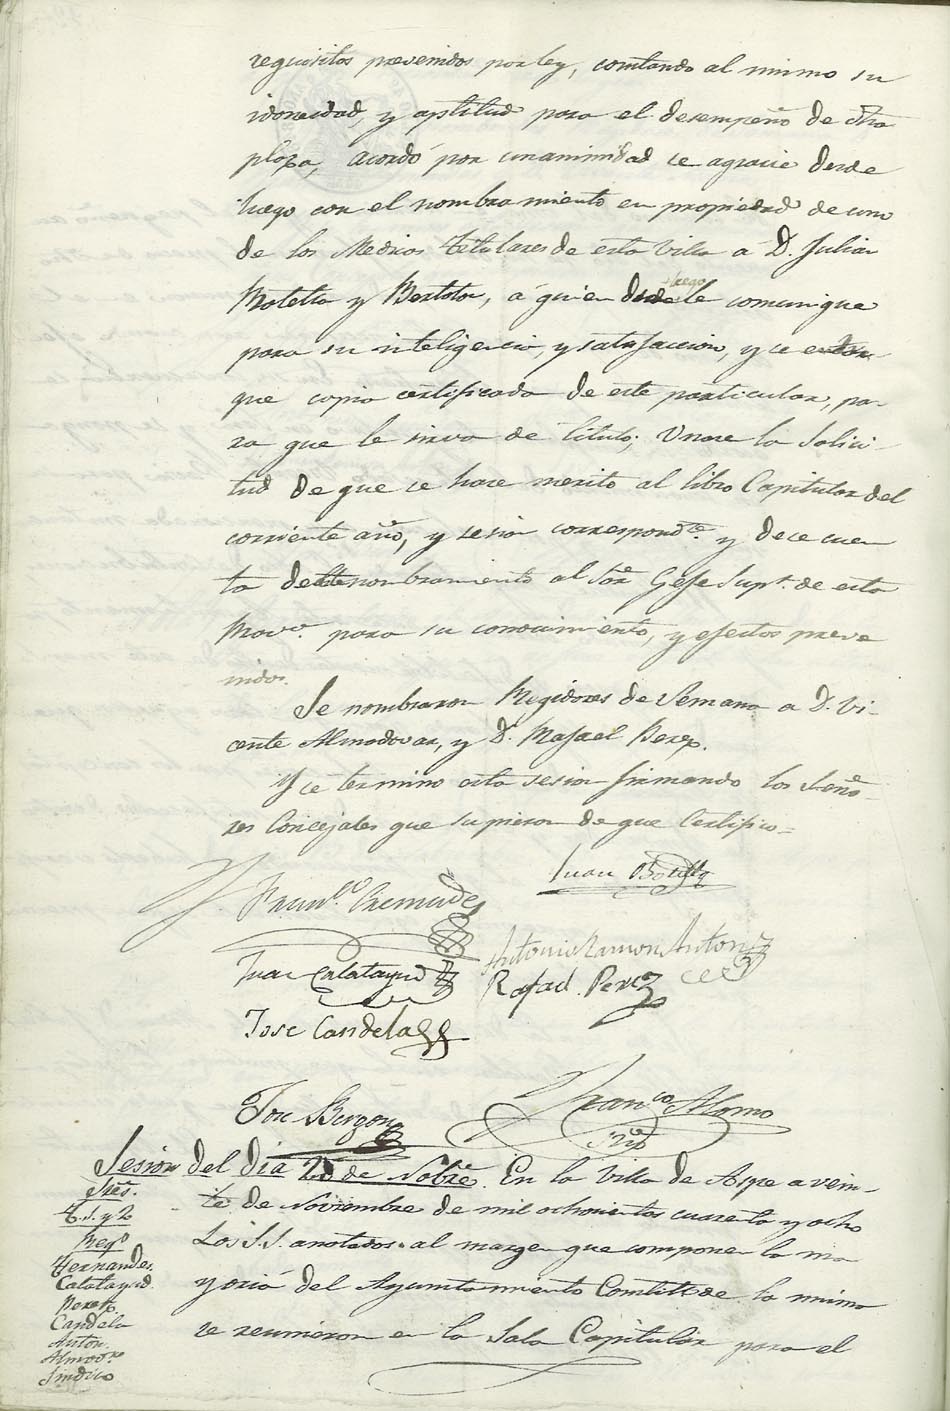 requisitos prevenidos por ley, constando al mismo su
idoneidad, y aptitud para el desempeño de dha
plaza, acordó por unanimidad se agracie desde
luego con el nombramiento en propiedad de uno
de los Medicos Titulares de esta Villa a D. Julian
y Bertolon, á quien desde luego le comunique
para su inteligencia, y satisfaccion, y se
que copia certificada de este particular, pa-
ra que le sirva de titulo; Unase la solici-
tud de que se hace merito al libro Capitular del
corriente año, y sesion correspondte. y dese cuen
ta deeste nombramiento al Sor. Gefe Supr. de esta
Provа. para su conocimiento, y efectos preve
nidos.
Se nombraron Regidores de Semana a D. Vi-
cente Almodovar, y D. Rafael Perez.
Y se termino esta sesion firmando los Seño-
res Concejales que supieron de que Certifico=
Juan Botella
Franco. Cremades
Antonio Ramon Anton
Juan Calatayud
Rafael Perez
Jose Candela
Jose Berzona
Franco Alonso
Srio
Sesion del dia 20 de Nobre. En la Villa de Aspe a vein-
te de Noviembre de mil ochocientos cuarenta y ocho
Los S.S. anotados al margen que componen la ma
yoria del Ayuntamiento Constitl. de la misma
se reunieron en la Sala Capitular para el
Sres.
T. 1. y 2º
Regs
Fernandez
Calatayud
Perez
Candela
Anton
Almodr
Sindico